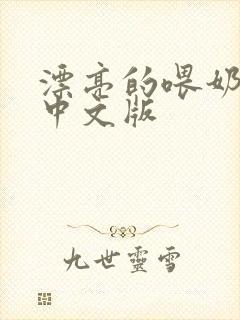 漂亮的喂奶
中文版
九世靈雪